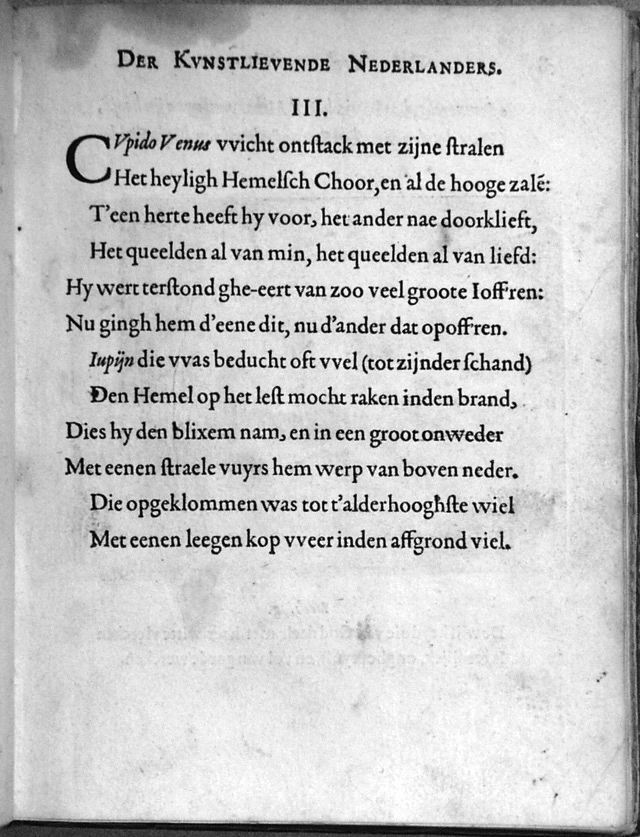 DER KVNSTLIEVENDE NEDERLANDERS.
III.
CVpido Venus vvicht ontſtack met zijne ſtralen
Het heyligh Hemelſch Choor, en al de hooge zalē:
T'een herte heeft hy voor, het ander nae doorklieft,
Het queelden al van min, het queelden al van liefd:
Hy wert terſtond ghe-eert van zoo veel groote Ioffren:
Nu gingh hem d'eene dit, nu d'ander dat opoffren.
Iupijn die vvas beducht oft vvel (tot zijnder ſchand)
Den Hemel op het leſt mocht raken inden brand,
Dies hy den blixem nam, en in een groot onweder
Met eenen ſtraele vuyrs hem werp van boven neder.
Die opgeklommen was tot t'alderhooghſte wiel
Met eenen leegen kop vveer inden affgrond viel.